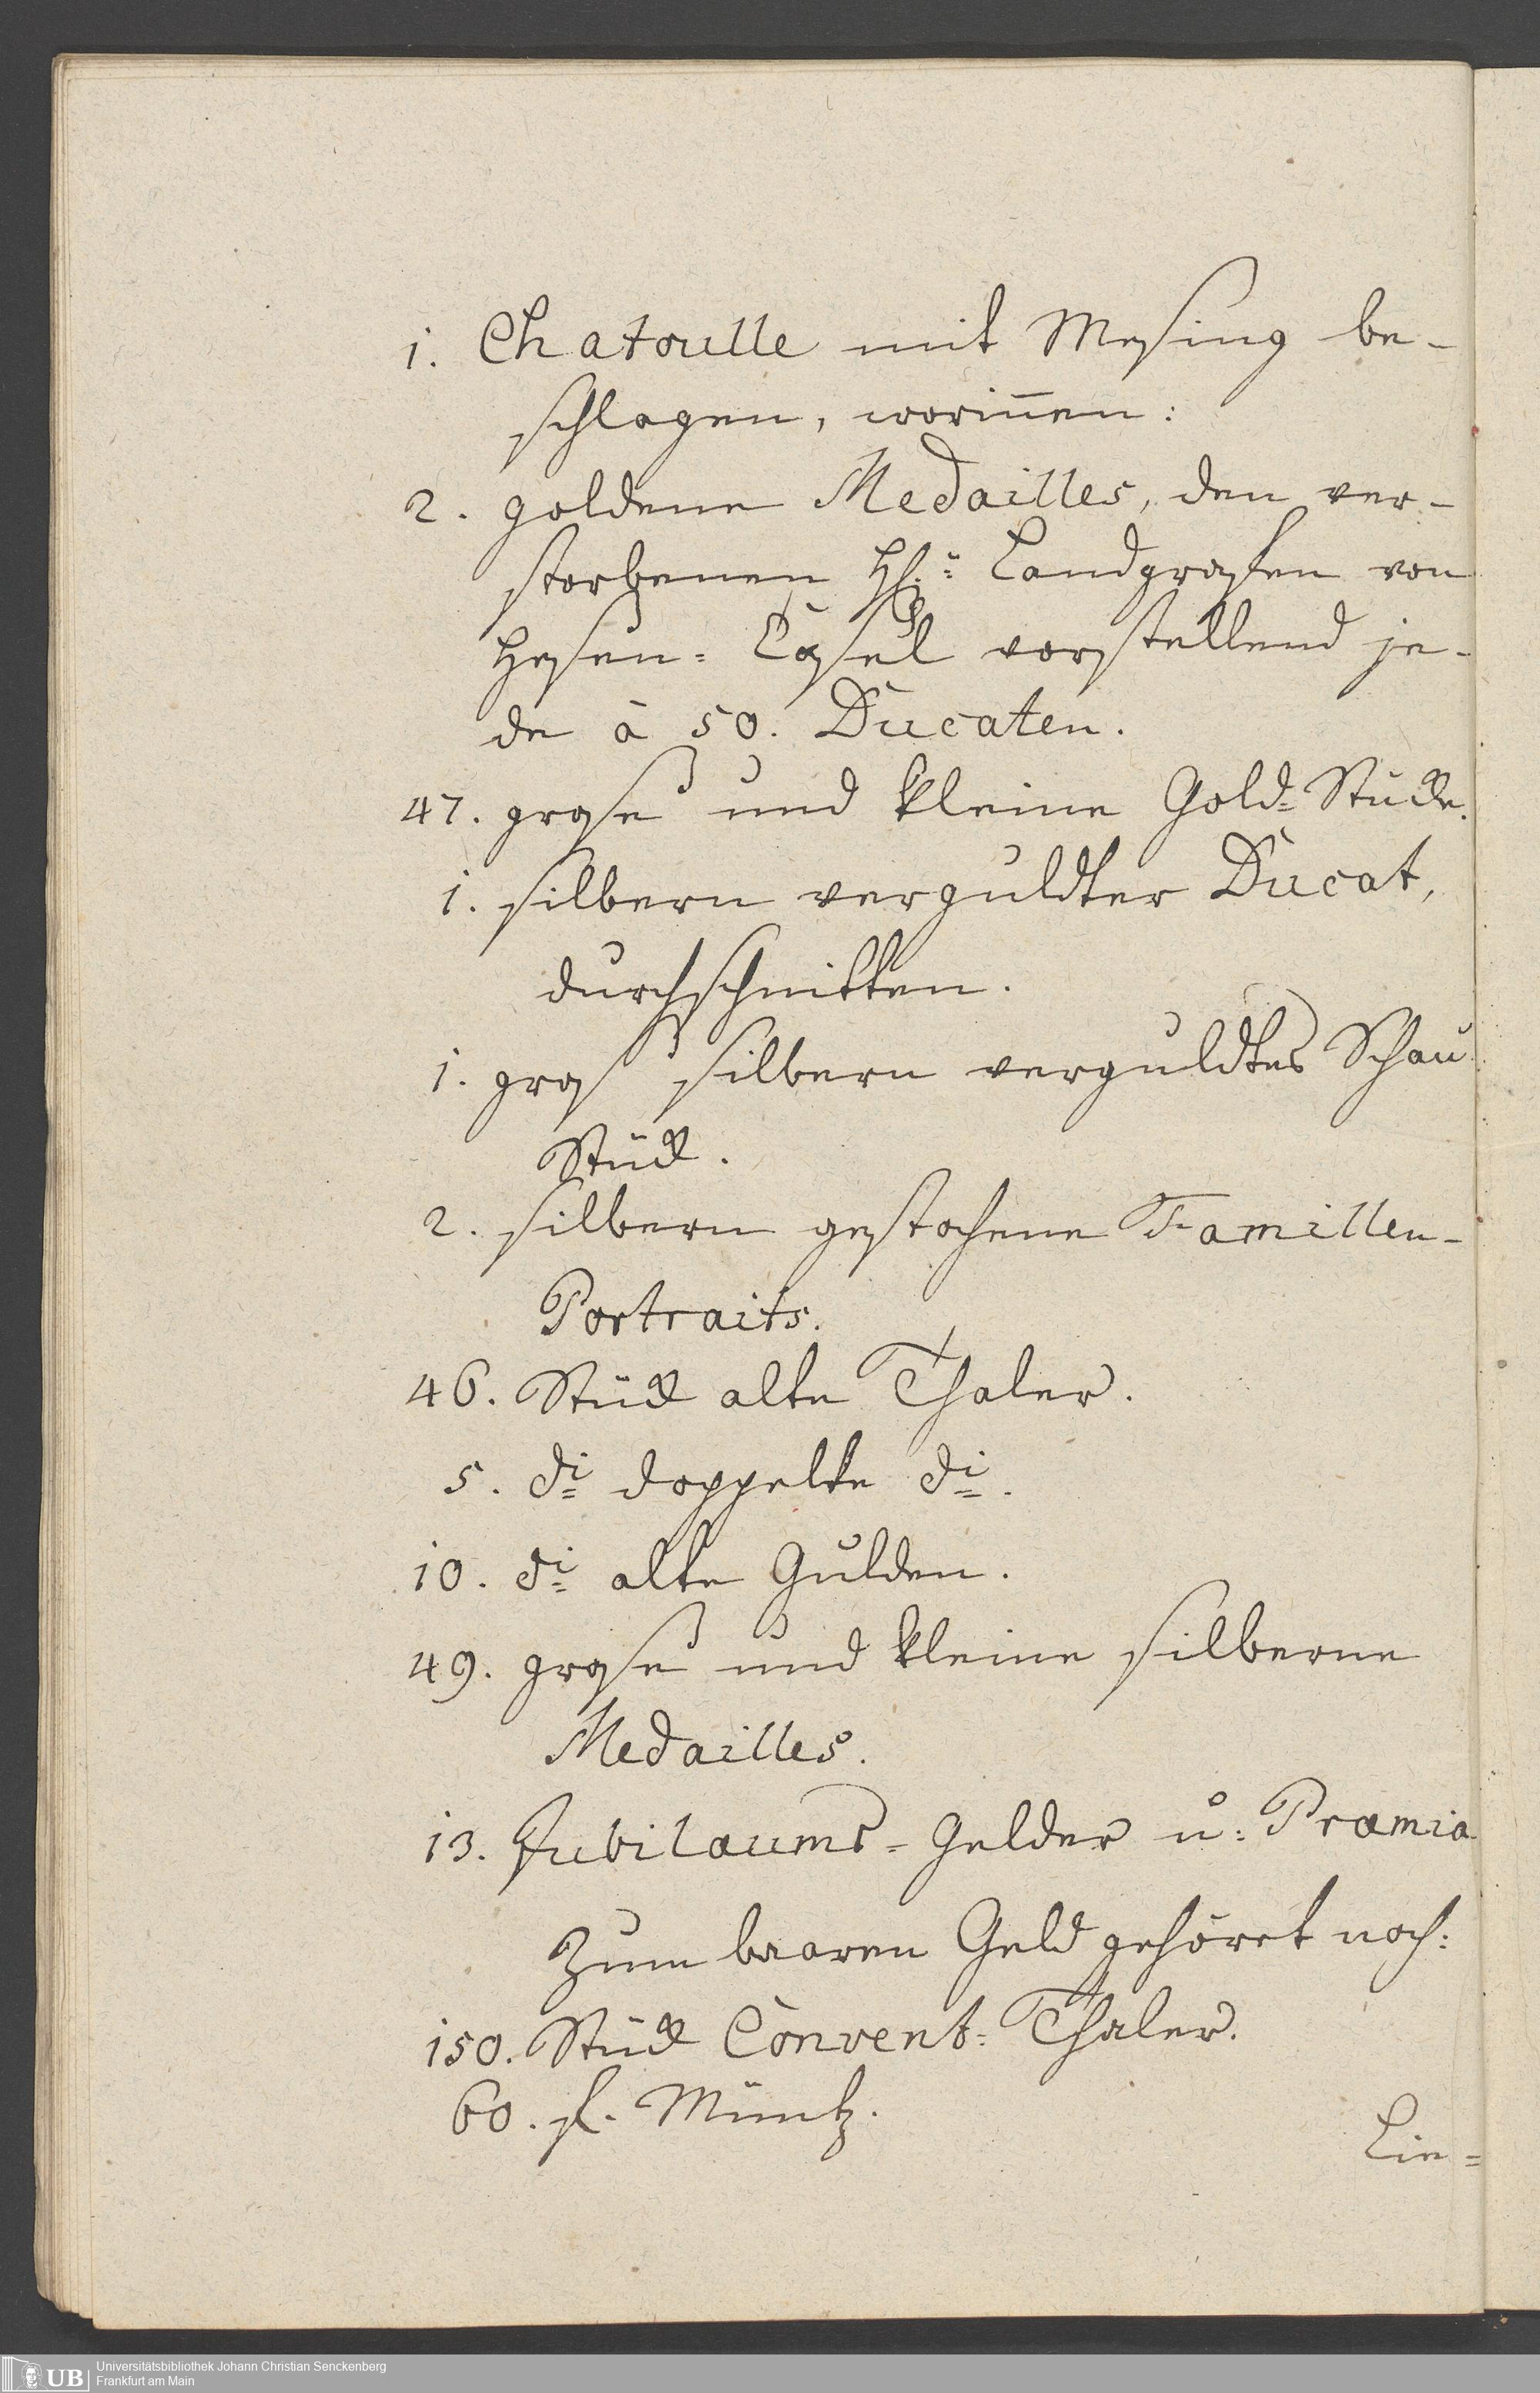 1. Chatoulle mit Mesing be-
schlagen, worinnen:
2. goldene Medailles, den ver-
storbenen Landgrafen von
Hessen-Cassel vorstellend je-
de à 50. Ducaten.
47. grose und kleine Gold-Stücke.
1. silbern verguldter Ducat,
durchschnitten.
1. gros silbern verguldtes Schau
Stück.
2. silbern gestochene Famillen-
Portraits.
46. Stück alte Thaler.
5. do doppelte do.
10. do alte Gulden.
49. grose und kleine silberne
Medailles.
13. Jubilæums-Gelder u: Præmia
Zum baaren Geld gehöret noch:
150. Stück Convent: Thaler.
60. fl. Müntz.
Lie=
UB Universitätsbibliothek Johann Christian Senckenberg
Frankfurt am Main